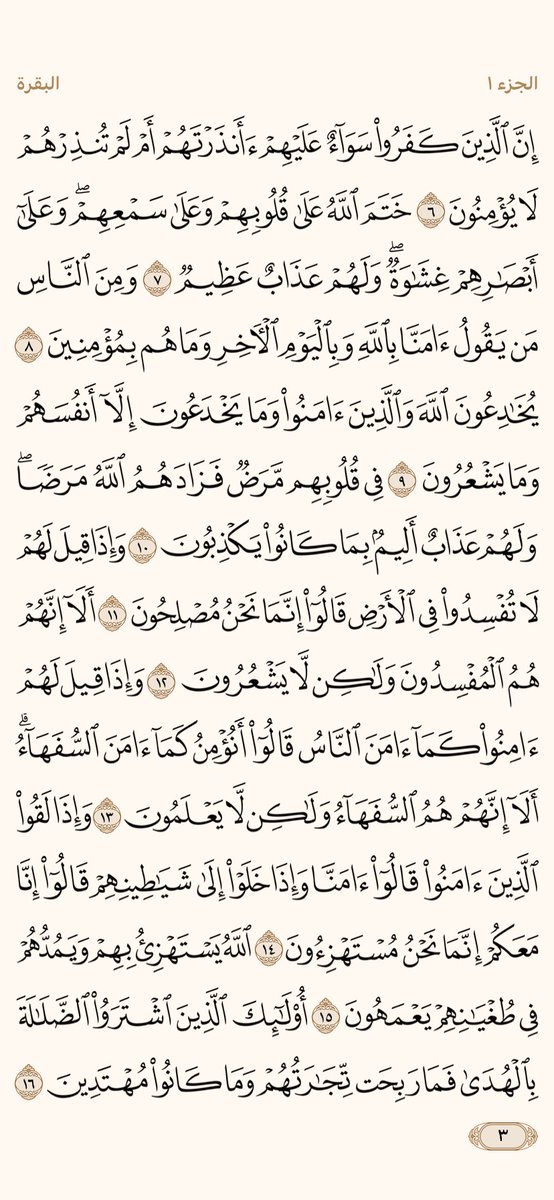 الجزء ١
البقرة
إِنَّ ٱلَّذِينَ كَفَرُوا۟ سَوَآءٌ عَلَيْهِمْ ءَأَنذَرْتَهُمْ أَمْ لَمْ تُنذِرْهُمْ
لَا يُؤْمِنُونَ ٦ خَتَمَ ٱللَّهُ عَلَىٰ قُلُوبِهِمْ وَعَلَىٰ سَمْعِهِمْ ۖ وَعَلَىٰٓ
أَبْصَـٰرِهِمْ غِشَـٰوَةٌ ۖ وَلَهُمْ عَذَابٌ عَظِيمٌ ٧ وَمِنَ ٱلنَّاسِ
مَن يَقُولُ ءَامَنَّا بِٱللَّهِ وَبِٱلْيَوْمِ ٱلْـَٔاخِرِ وَمَا هُم بِمُؤْمِنِينَ ٨
يُخَـٰدِعُونَ ٱللَّهَ وَٱلَّذِينَ ءَامَنُوا۟ وَمَا يَخْدَعُونَ إِلَّآ أَنفُسَهُمْ
وَمَا يَشْعُرُونَ ٩ فِى قُلُوبِهِم مَّرَضٌ فَزَادَهُمُ ٱللَّهُ مَرَضًا ۖ
وَلَهُمْ عَذَابٌ أَلِيمٌۢ بِمَا كَانُوا۟ يَكْذِبُونَ ١٠ وَإِذَا قِيلَ لَهُمْ
لَا تُفْسِدُوا۟ فِى ٱلْأَرْضِ قَالُوٓا۟ إِنَّمَا نَحْنُ مُصْلِحُونَ ١١ أَلَآ إِنَّهُمْ
هُمُ ٱلْمُفْسِدُونَ وَلَـٰكِن لَّا يَشْعُرُونَ ١٢ وَإِذَا قِيلَ لَهُمْ
ءَامِنُوا۟ كَمَآ ءَامَنَ ٱلنَّاسُ قَالُوٓا۟ أَنُؤْمِنُ كَمَآ ءَامَنَ ٱلسُّفَهَآءُ ۗ
أَلَآ إِنَّهُمْ هُمُ ٱلسُّفَهَآءُ وَلَـٰكِن لَّا يَعْلَمُونَ ١٣ وَإِذَا لَقُوا۟
ٱلَّذِينَ ءَامَنُوا۟ قَالُوٓا۟ ءَامَنَّا وَإِذَا خَلَوْا۟ إِلَىٰ شَيَـٰطِينِهِمْ قَالُوٓا۟ إِنَّا
مَعَكُمْ إِنَّمَا نَحْنُ مُسْتَهْزِءُونَ ١٤ ٱللَّهُ يَسْتَهْزِئُ بِهِمْ وَيَمُدُّهُمْ
فِى طُغْيَـٰنِهِمْ يَعْمَهُونَ ١٥ أُو۟لَـٰٓئِكَ ٱلَّذِينَ ٱشْتَرَوُا۟ ٱلضَّلَـٰلَةَ
بِٱلْهُدَىٰ فَمَا رَبِحَت تِّجَـٰرَتُهُمْ وَمَا كَانُوا۟ مُهْتَدِينَ ١٦
٣